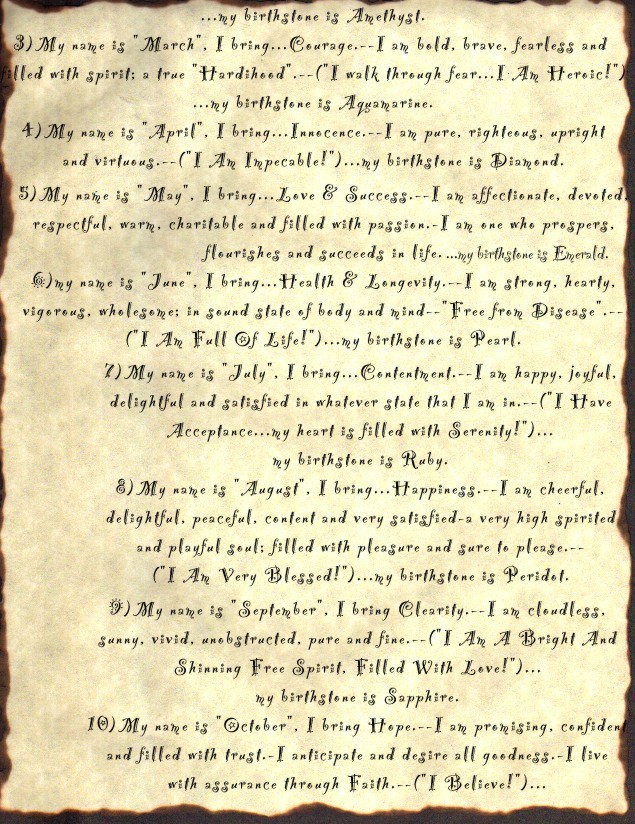 ...my birthstone is Amethyst.
3) My name is "March", I bring...Courage.--I am bold, brave, fearless and
filled with spirit; a true "Hardihood".--("I walk through fear...I Am Heroic!")
...my birthstone is Aquamarine.
4) My name is "April", I bring...Innocence.--I am pure, righteous, upright
and virtuous.--("I Am Impecable!")...my birthstone is Diamond.
5) My name is "May", I bring...Love & Success.--I am affectionate, devoted,
respectful, warm, charitable and filled with passion.-I am one who prospers,
flourishes and succeeds in life. ...my birthstone is Emerald.
6)my name is "June", I bring...Health & Longevity.--I am strong, hearty,
vigorous, wholesome; in sound state of body and mind--"Free from Disease".--
("I Am Full Of Life!")...my birthstone is Pearl.
7) My name is "July", I bring...Contentment.--I am happy, joyful,
delightful and satisfied in whatever state that I am in.--("I Have
Acceptance...my heart is filled with Serenity!")...
my birthstone is Ruby.
8) My name is "August", I bring...Happiness.--I am cheerful,
delightful, peaceful, content and very satisfied-a very high spirited
and playful soul; filled with pleasure and sure to please.--
("I Am Very Blessed!")...my birthstone is Peridot.
9) My name is "September", I bring Clearity.--I am cloudless,
sunny, vivid, unobstructed, pure and fine.--("I Am A Bright And
Shinning Free Spirit, Filled With Love!")...
my birthstone is Sapphire.
10) My name is "October", I bring Hope.--I am promising, confident
and filled with trust.-I anticipate and desire all goodness.-I live
with assurance through Faith.--("I Believe!")...